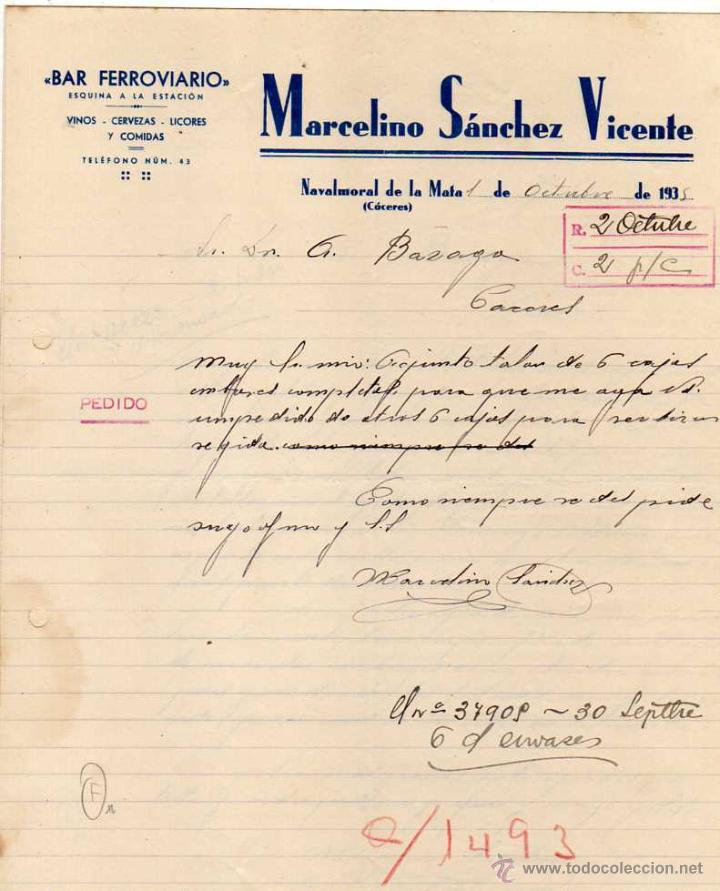 «BAR FERROVIARIO»
ESQUINA A LA ESTACIÓN
VINOS - CERVEZAS - LICORES
Y COMIDAS
TELÉFONO NÚM. 43
Marcelino Sánchez Vicente
Navalmoral de la Mata 1 de Octubre de 1935
(Cáceres)
R. 2 Octubre
C. 2 p/C
Sr. Dn. G. Básago
Caceres
Muy Sr. mio: Adjunto talon de 6 cajas
completas para que me aga Vd.
un pedido de otros 6 cajas para
segida. como siempre se del
PEDIDO
Como siempre se del pide
suyo afmo y S.S
Marcelino Sanchez
nº 37909 ~ 30 Septbre
6 envases
F
1493
www.todocoleccion.net